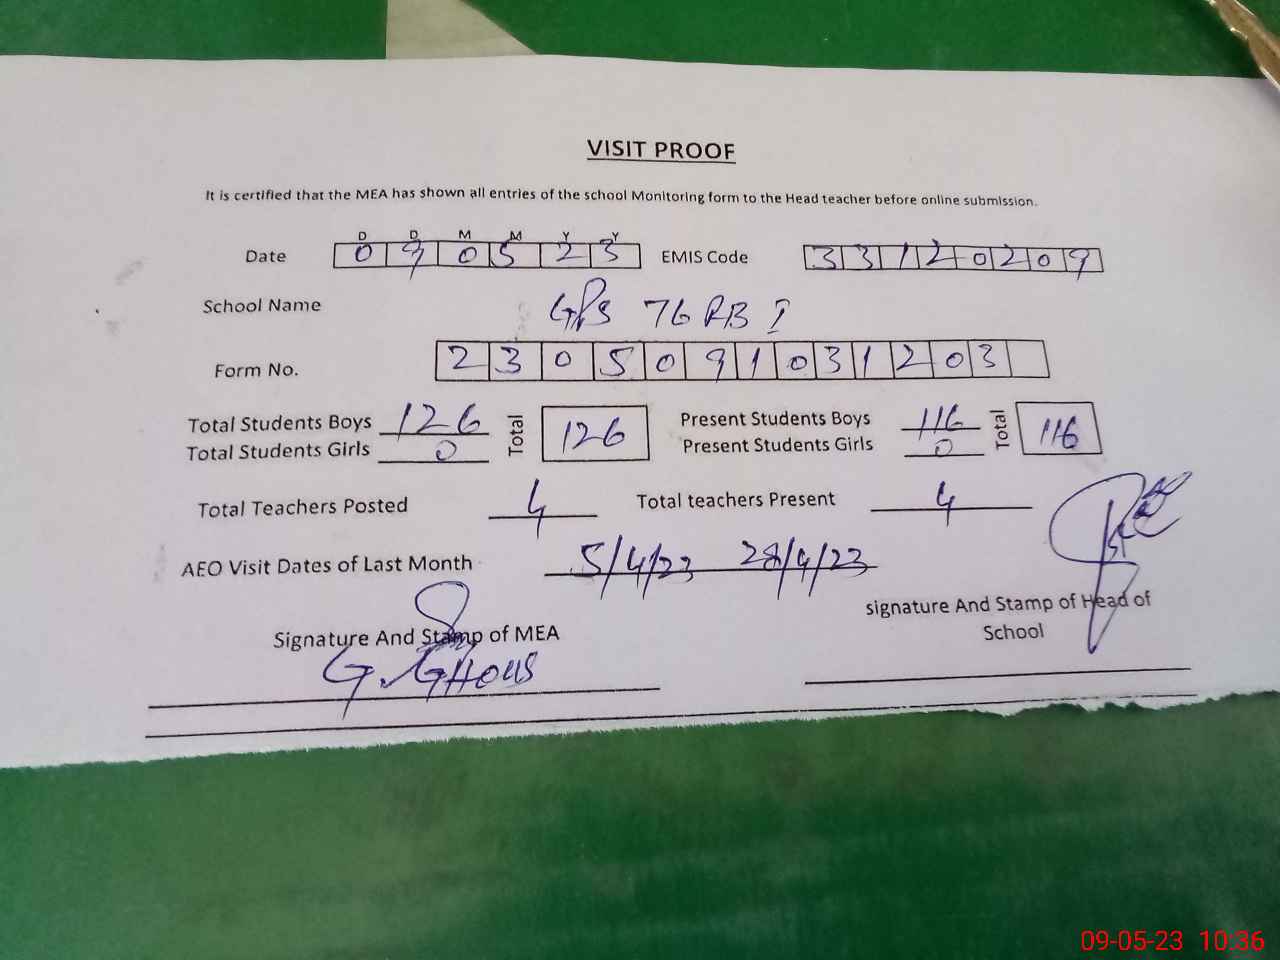 VISIT PROOF
It is certified that the MEA has shown all entries of the school Monitoring form to the Head teacher before online submission.
D D M M Y Y
Date 0 9 0 5 2 3 EMIS Code 3 3 1 2 0 2 0 9
School Name GPS 76 RB I
Form No. 2 3 0 5 0 9 1 0 3 1 2 0 3
Total Students Boys 126 Total 126 Present Students Boys 116 Total 116
Total Students Girls 0 Present Students Girls 0
Total Teachers Posted 4 Total teachers Present 4
AEO Visit Dates of Last Month 5/4/23 28/4/23
signature And Stamp of Head of
School
Signature And Stamp of MEA
G. GHOUS
09-05-23 10:36